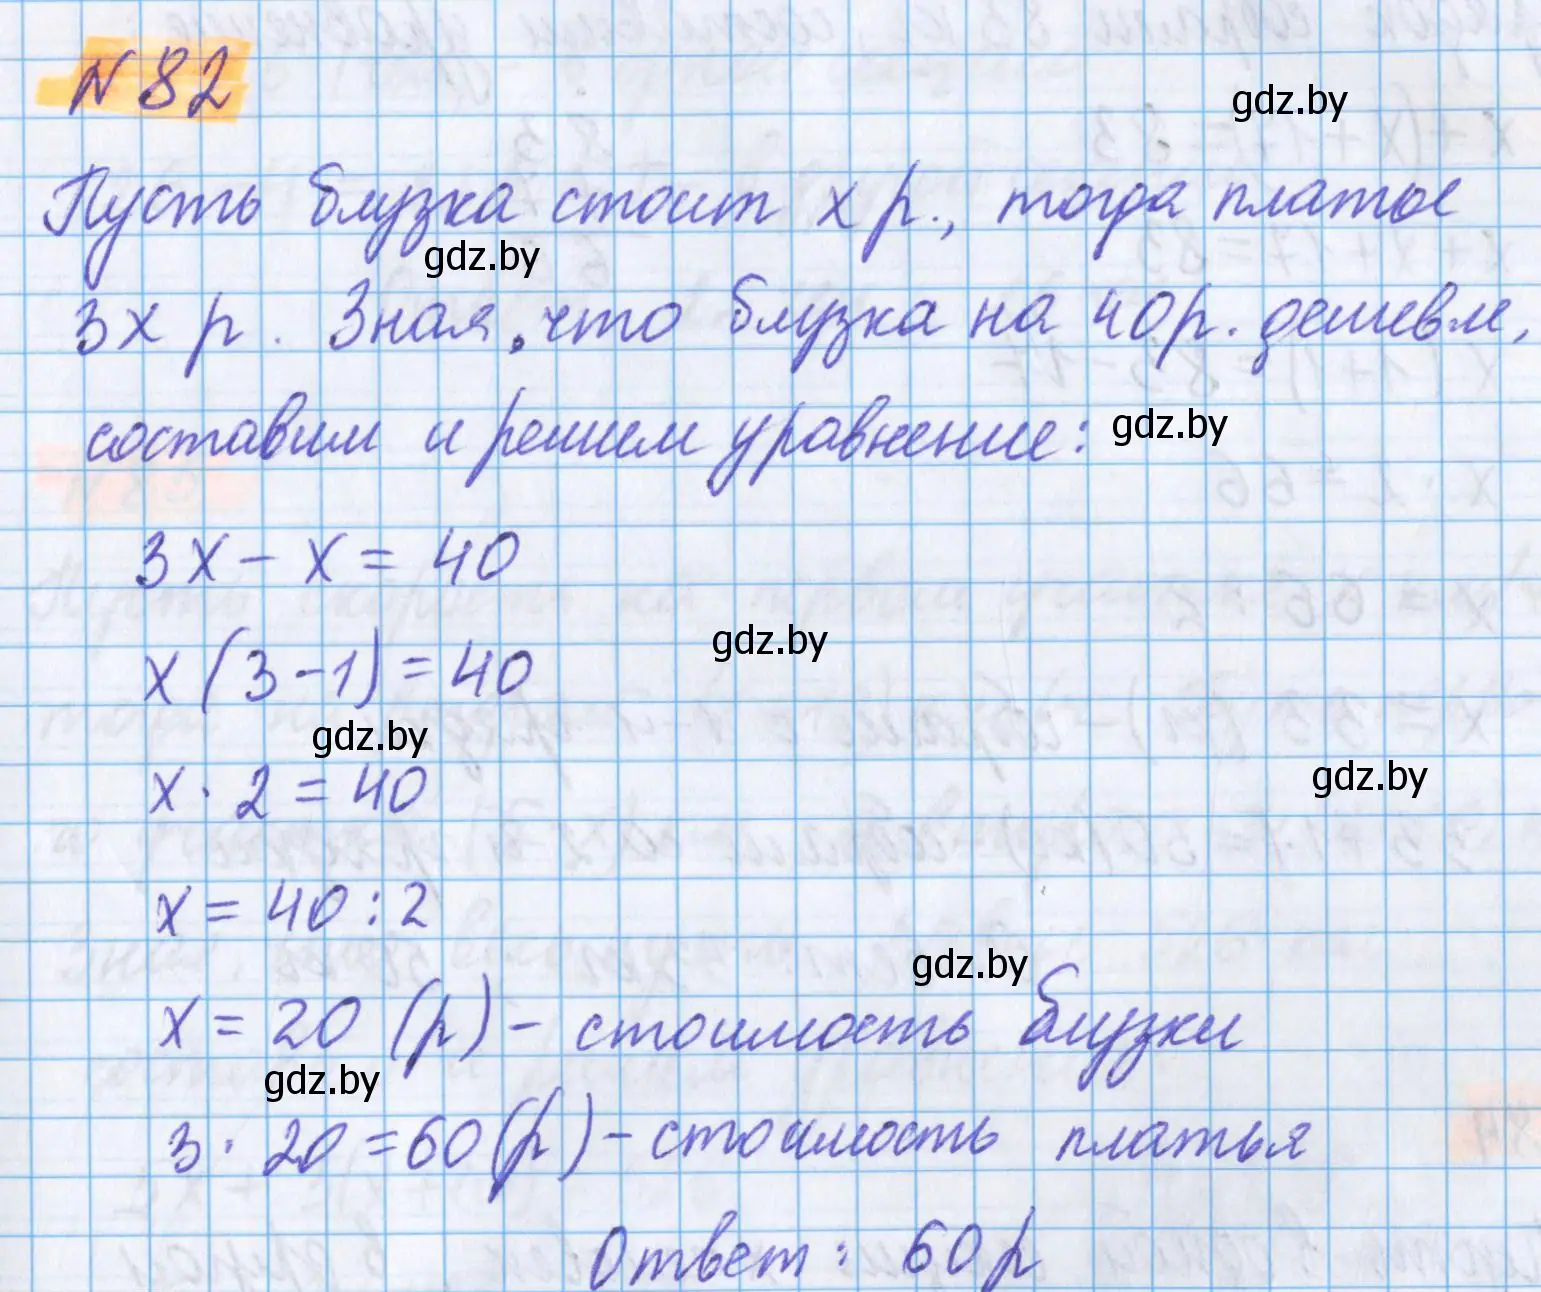 N 82
gdz.by
Пусть блузка стоит x р., тогда платье
gdz.by
3x р. Зная, что блузка на 40р. дешевле,
составим и решим уравнение:
gdz.by
3x - x = 40
x (3-1) = 40
gdz.by
gdz.by
x · 2 = 40
gdz.by
x = 40 : 2
gdz.by
x = 20 (р) - стоимость блузки
gdz.by
3 · 20 = 60 (р) - стоимость платья
Ответ: 60 р